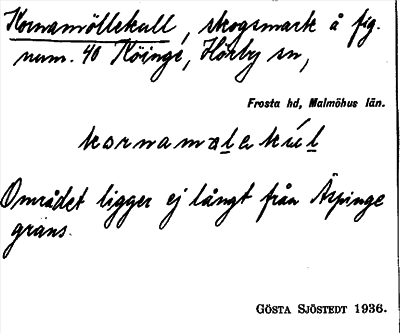 Kornamöllekull, skogsmark å fig.
num. 40 Köinge, Hörby sn,
Frosta hd, Malmöhus län.
kornamølekúl
Området ligger ej långt från Äspinge
gräns.
GÖSTA SJÖSTEDT 1936.